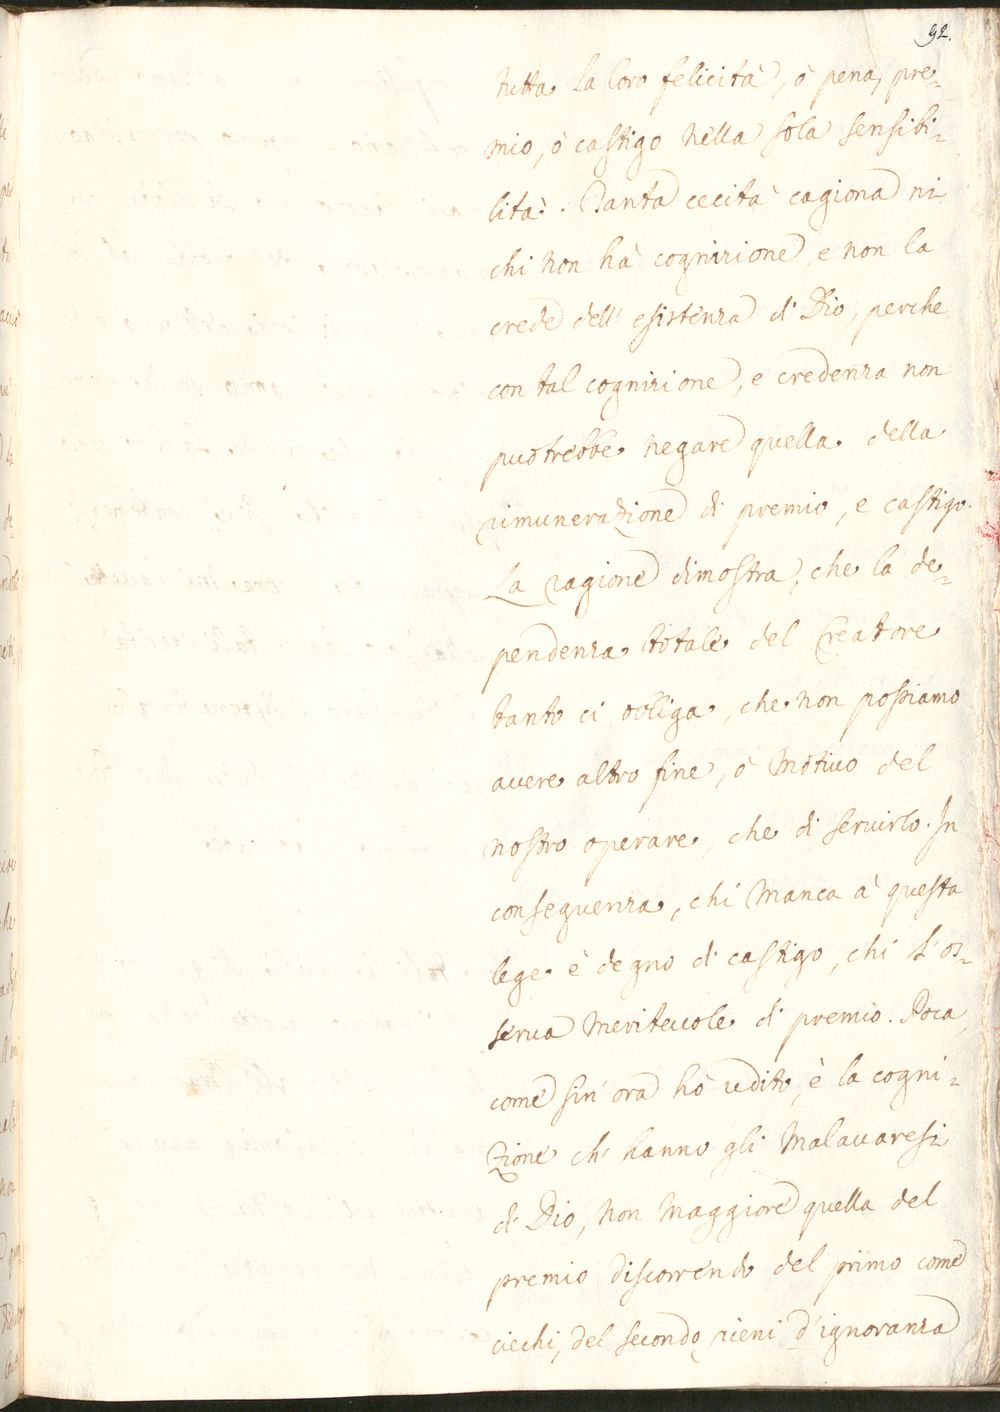 92.
tutta la loro felicità, ò pena, pre-
mio, ò castigo nella sola sensibi-
lità. Tanta cecità cagiona ni
chi non hà cognizione, e non la
crede dell' esistenza di Dio, perche
con tal cognizione, e credenza non
puotrebbe negare quella della
rimunerazione di premio, e castigo.
La ragione dimostra, che la de-
pendenza totale del Creatore
tanto ci obliga, che non possiamo
avere altro fine, ò motivo del
nostro operare, che di servirlo. In
conseguenza, chi manca à questa
lege è degno di castigo, chi l'os-
serva meritevole di premio. Poca
come sin' ora hò udito, è la cogni-
zione ch' hanno gli Malavaresi
di Dio, non maggiore quella del
premio discorrendo del primo come
ciechi, del secondo, rieni d'ignoranza